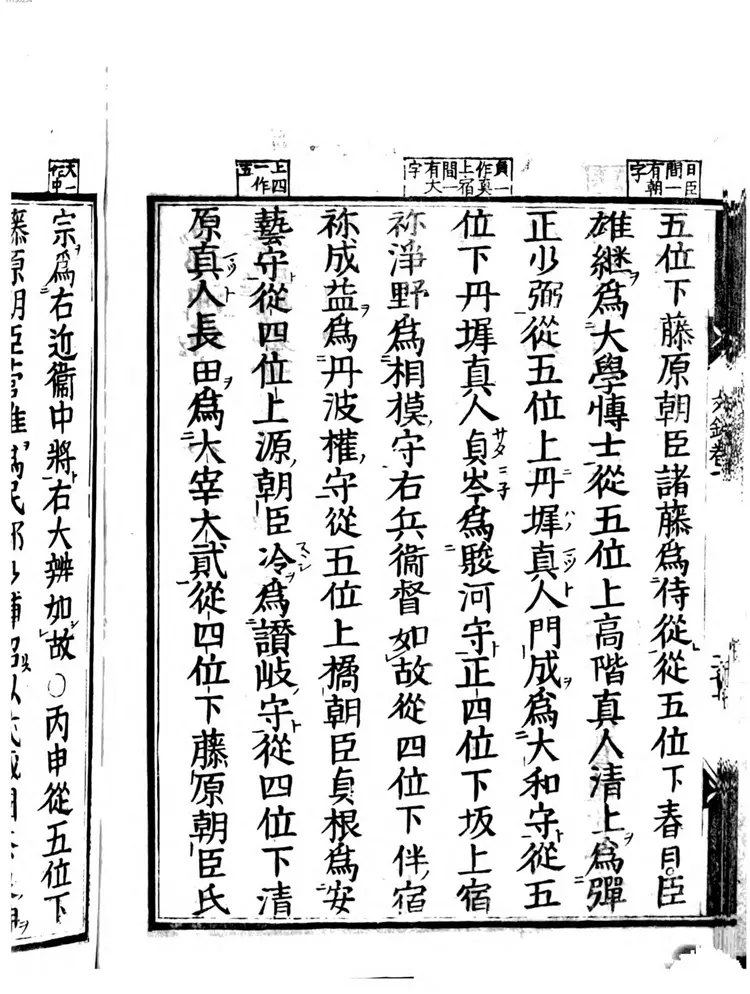 日臣間一有朝字
員一作真上宿間一有大字
上四一作五
五位下藤原朝臣諸藤爲侍從從五位下春日臣
雄継爲大學博士從五位上高階真人清上爲彈
正少弼從五位上丹墀真人門成爲大和守從五
位下丹墀真人貞岑爲駿河守正四位下坂上宿
祢淨野爲相摸守右兵衞督如故從四位下伴宿
祢成益爲丹波權守從五位上橘朝臣貞根爲安
藝守從四位上源朝臣冷爲讃岐守從四位下清
原真人長田爲大宰大貳從四位下藤原朝臣氏
宗爲右近衞中將右大辨如故○丙申從五位下
藤原朝臣菅雄爲民部少輔